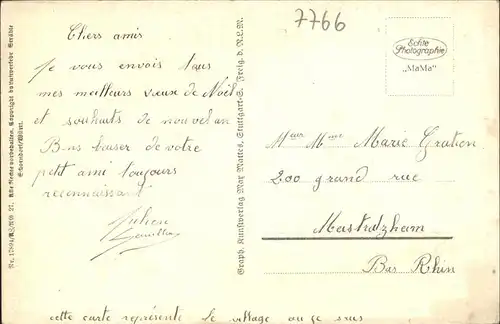 7766
Chers amis
Je vous envois tous
mes meilleurs vœux de Noël
et souhaits de nouvel an
Bons baiser de votre
petit ami toujours
reconnaissant
Julien
cette carte représente le village ou je suis
Echte
Photographie
„MaMa"
Meur Mme Marie Gration
200 grand rue
Mastutzheim
Bas Rhin
Graph. Kunstverlag Max Mattes, Stuttgart-S. Freig. d. R.L.M.
Alle Rechte vorbehalten. Copyright